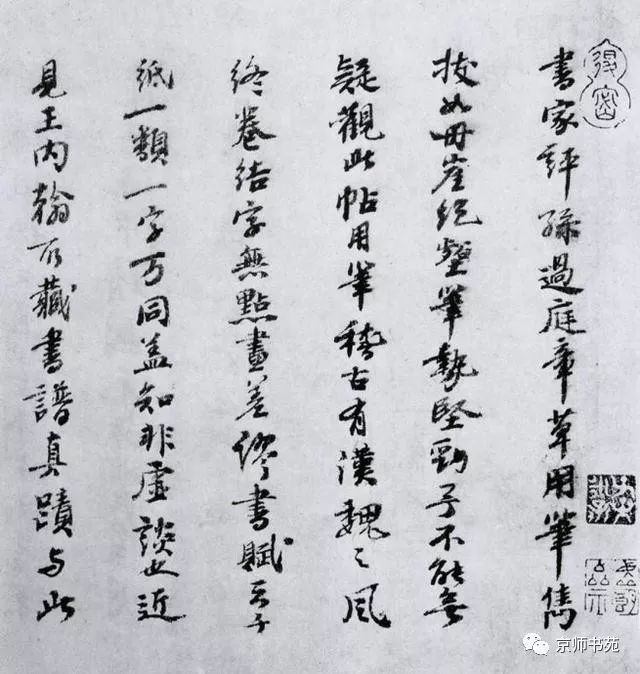 書家評孫過庭章草用筆雋
拔如丹崖絕壑筆勢堅勁予不能無
疑觀此帖用筆稽古有漢魏之風
終卷結字無點畫差繆書賦云千
紙一類一字万同盖知非虛談也近
見王內翰所藏書譜真蹟与此
京师书苑